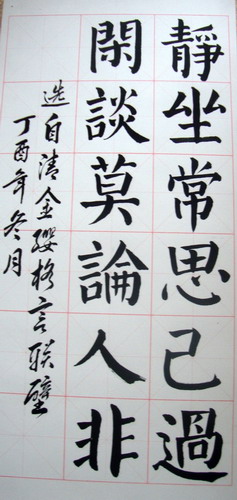 靜坐常思己過
閑談莫論人非
选自清金缨格言联璧
丁酉年冬月